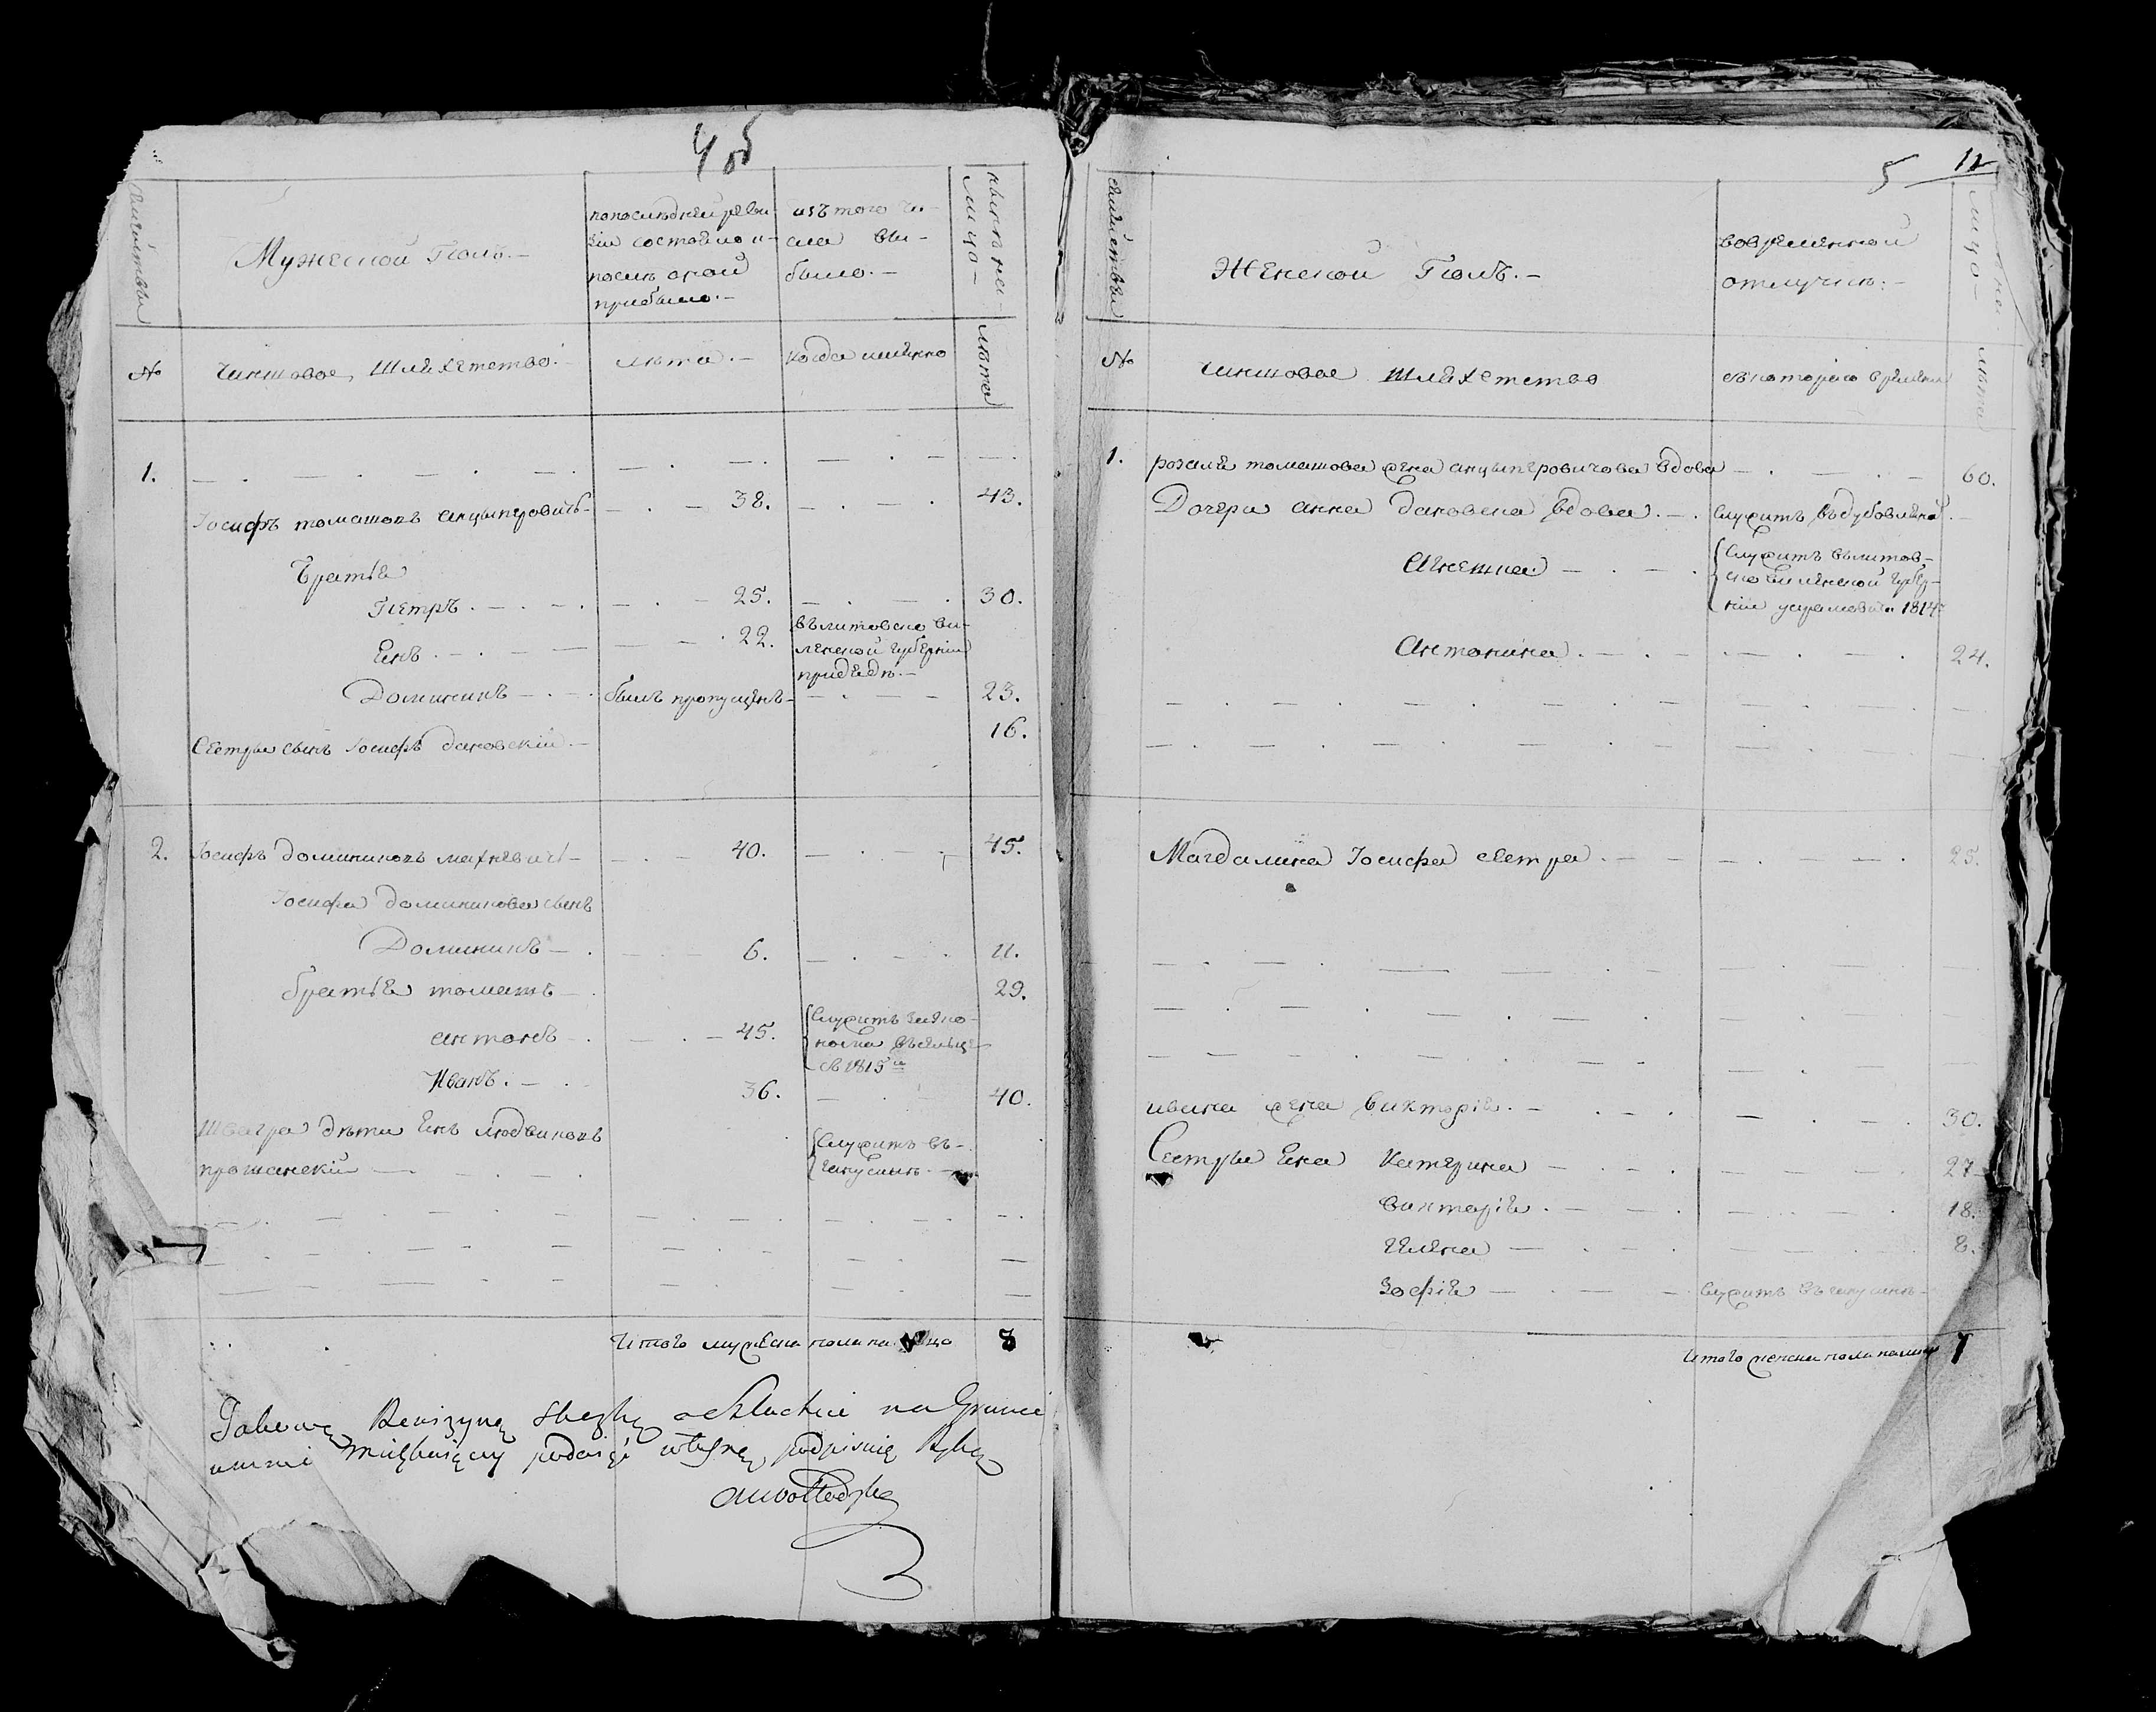 4 об
Семейства
Мужеской Полъ. —
попоследней реви-
зіи состояло и
после оной
прибыло. —
изъ того чи-
сла вы-
было. —
ныне на
лицо —
№
Чиншовое Шляхетство. —
лета. —
когда именно
лета
1.
Іосифъ томашовъ анцыперовичъ — 38. 43.
Братья
Петръ. — 25. 30.
Янъ. — 22. въ литовско ви-
ленской губерніи
Доминикъ — былъ пропущенъ — 23.
Сестры сынъ Іосифъ дановскій. — 16.
2. Іосифъ доминиковъ махневичъ — 40. 45.
Іосифа доминикова сынъ
Доминикъ — 6. 11.
братья томашъ 29.
антонъ — 45. служитъ
съ 1815 го
Иванъ. — 36. 40.
Швагра дети Янъ людвиковъ
прошанскій — служитъ въ
Итого мужеска пола на лицо 8
Takową Rewizyną Skazkę o Szlachcie na Gruncie
umnie Mieszkaiącey podaiąc własną podpisuię Ręką
5 12
Семейства
Женской Полъ. —
вовременной
отлучке. —
лицо —
№
чиншовое шляхетство
съ котораго времени
лета
1. розалія томашова жена анцыперовичова вдова — 60.
Дочери анна дановска вдова. — служитъ
Агнешка — служитъ въ литов-
ско виленской губер-
ніи 1814
Антонина. — 24.
Магдалина Іосифа сестра. — 25.
ивана жена викторія. — 30.
Сестры Яна Катерина — 27
викторія. — 18.
Елена — 8.
Зофія — служитъ въ
Итого женска пола налицо 7